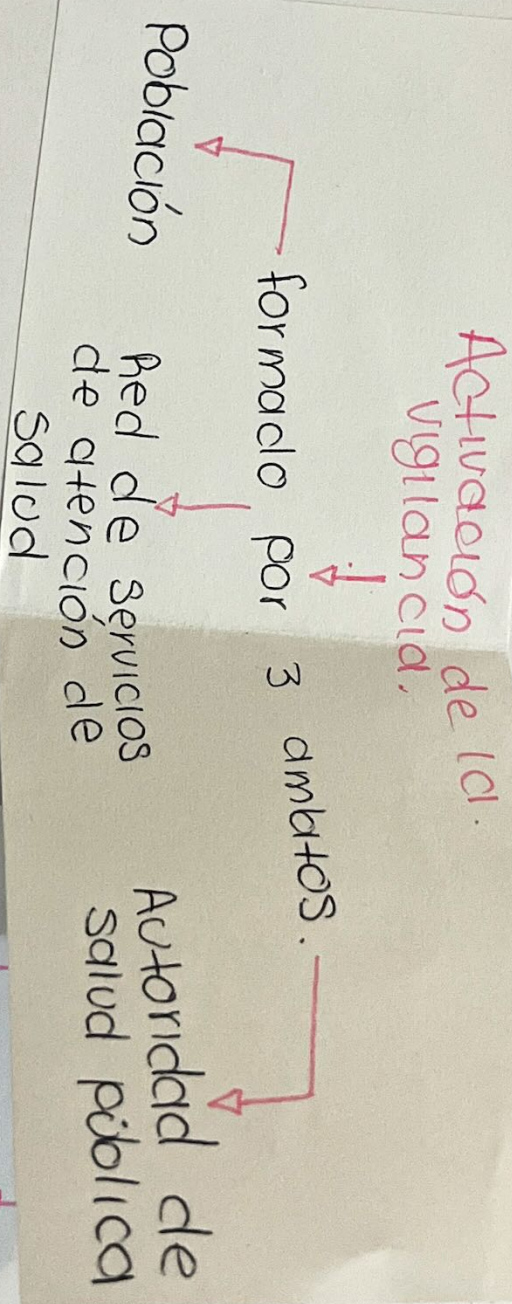 Activación de la.
vigilancia.
formado por 3 ambitos.
Población
Red de servicios
de atención de
salud
Autoridad de
salud pública